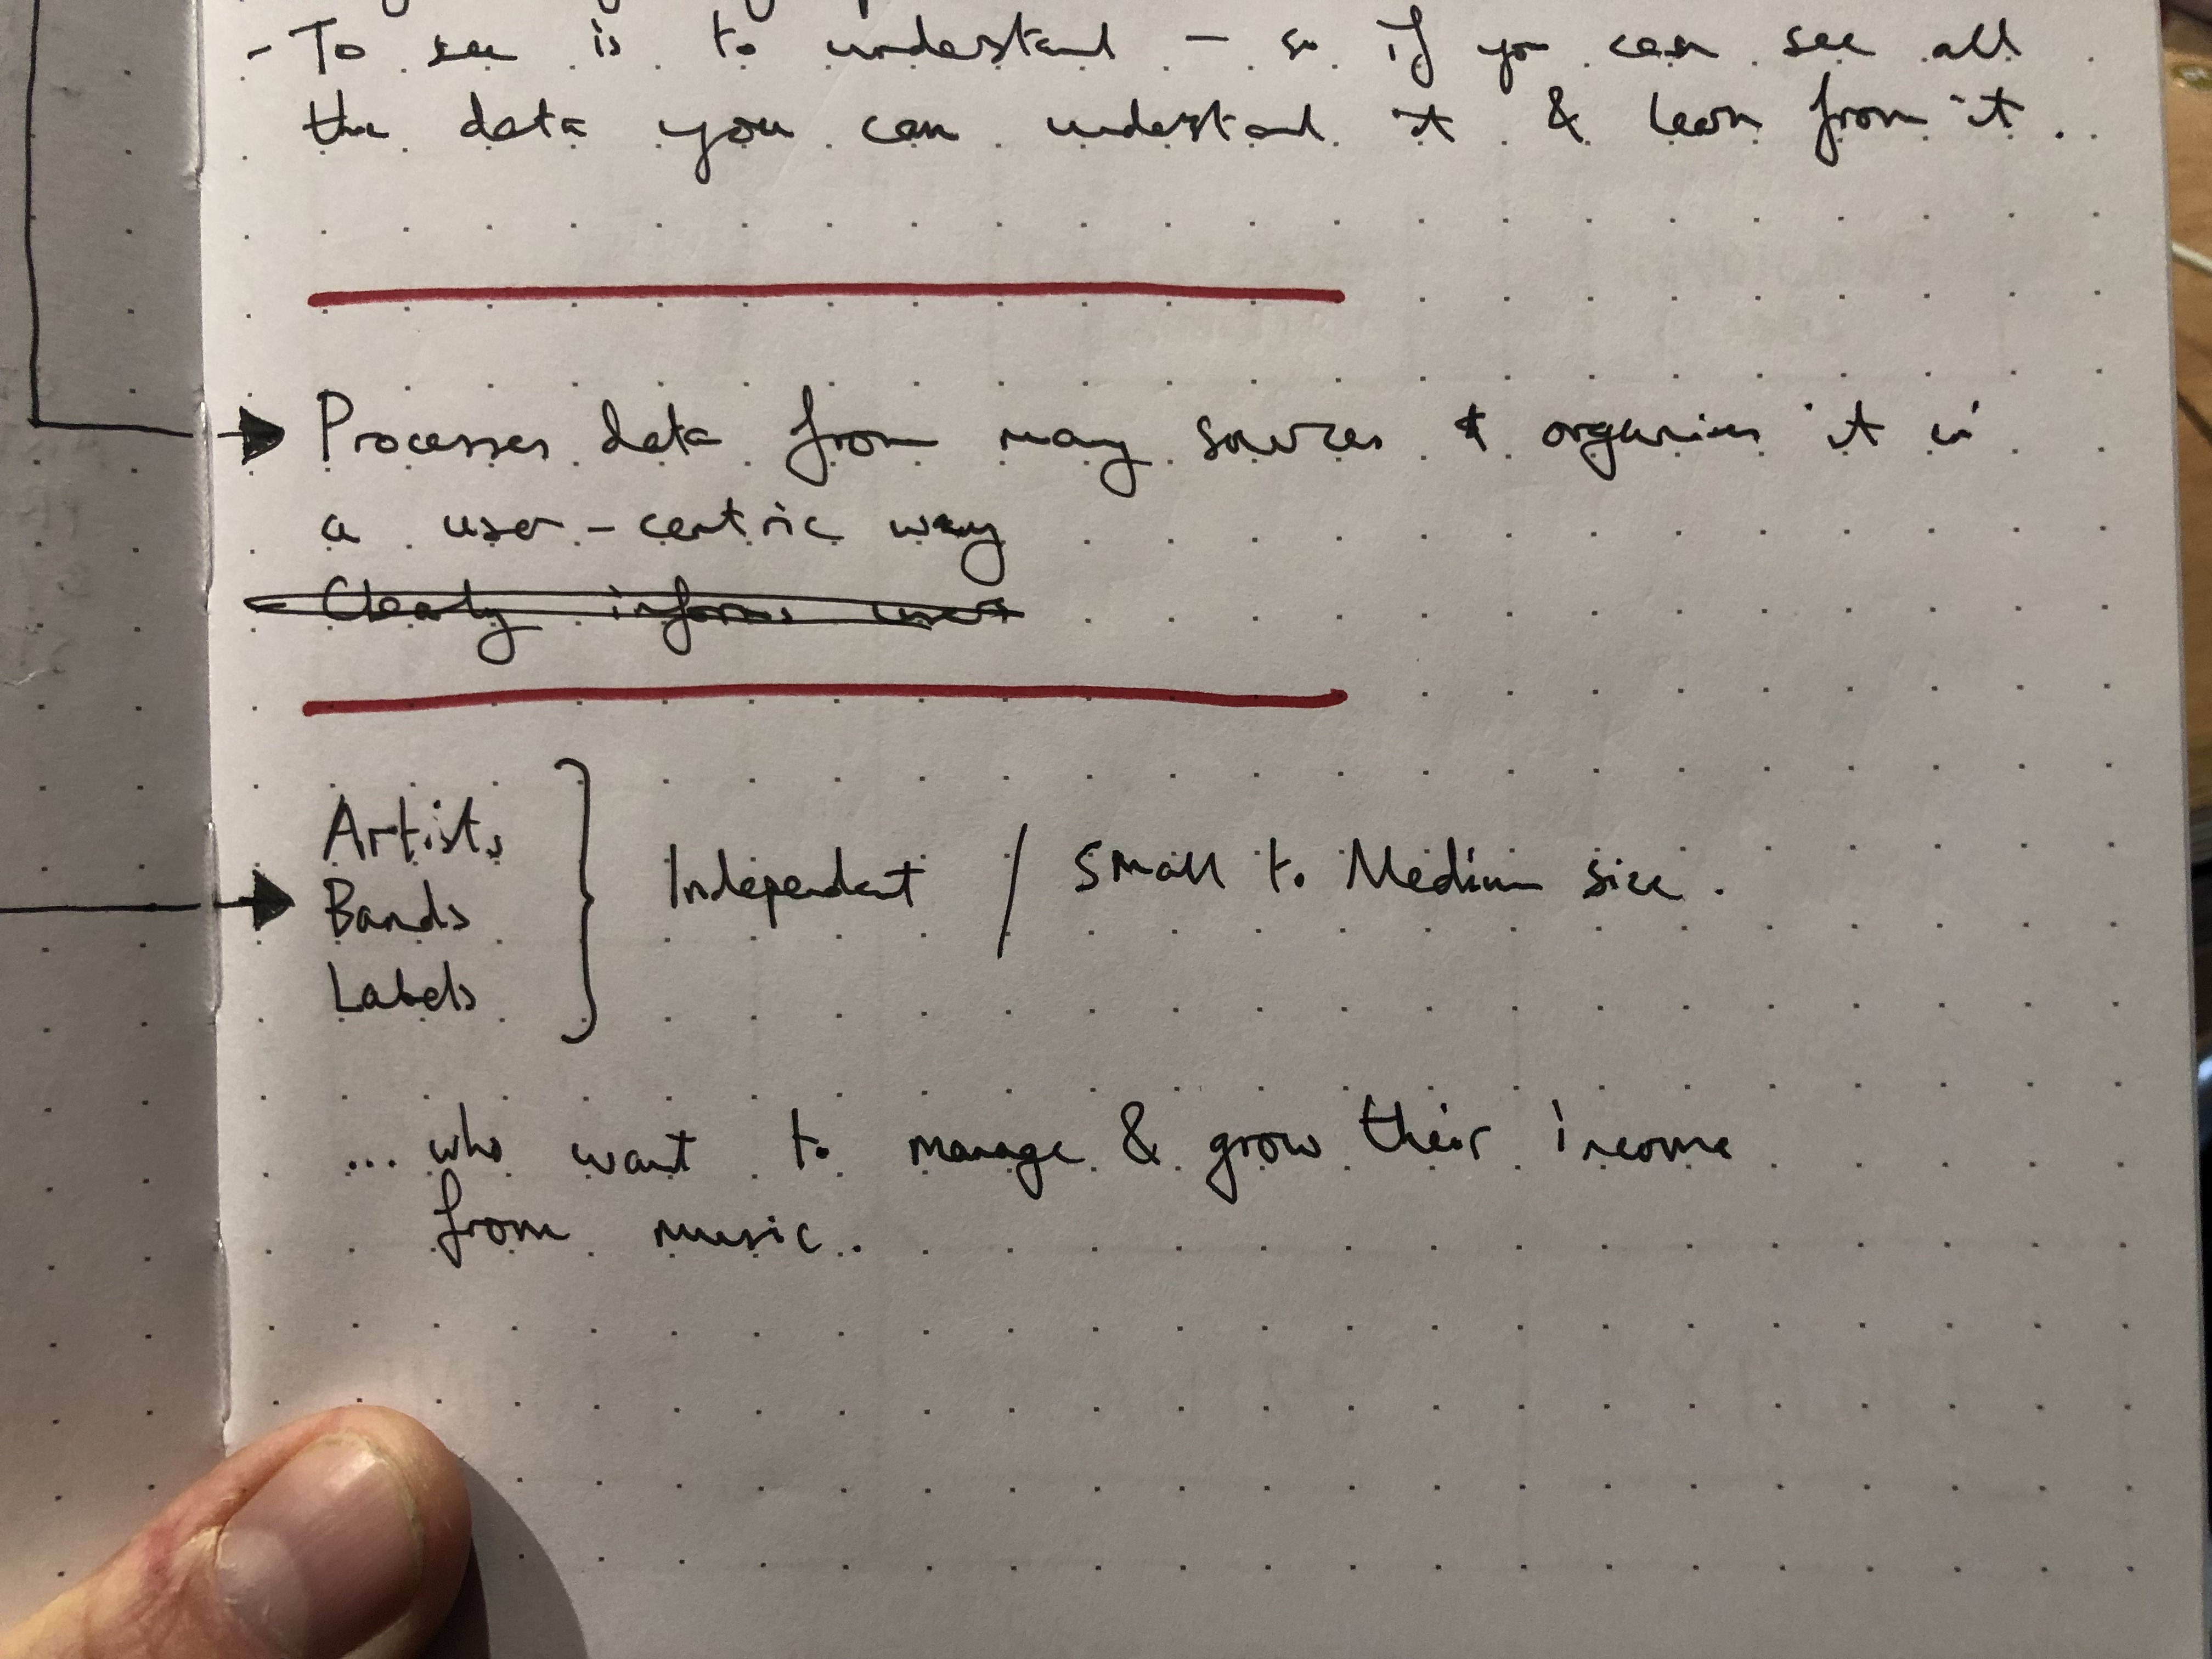 - To see is to understand - so if you can see all
the data you can understand it & learn from it.
Processes data from many sources & organises it in
a user-centric way
Clearly informs users
Artists
Bands
Labels
Independent / Small to Medium size.
... who want to manage & grow their income
from music.